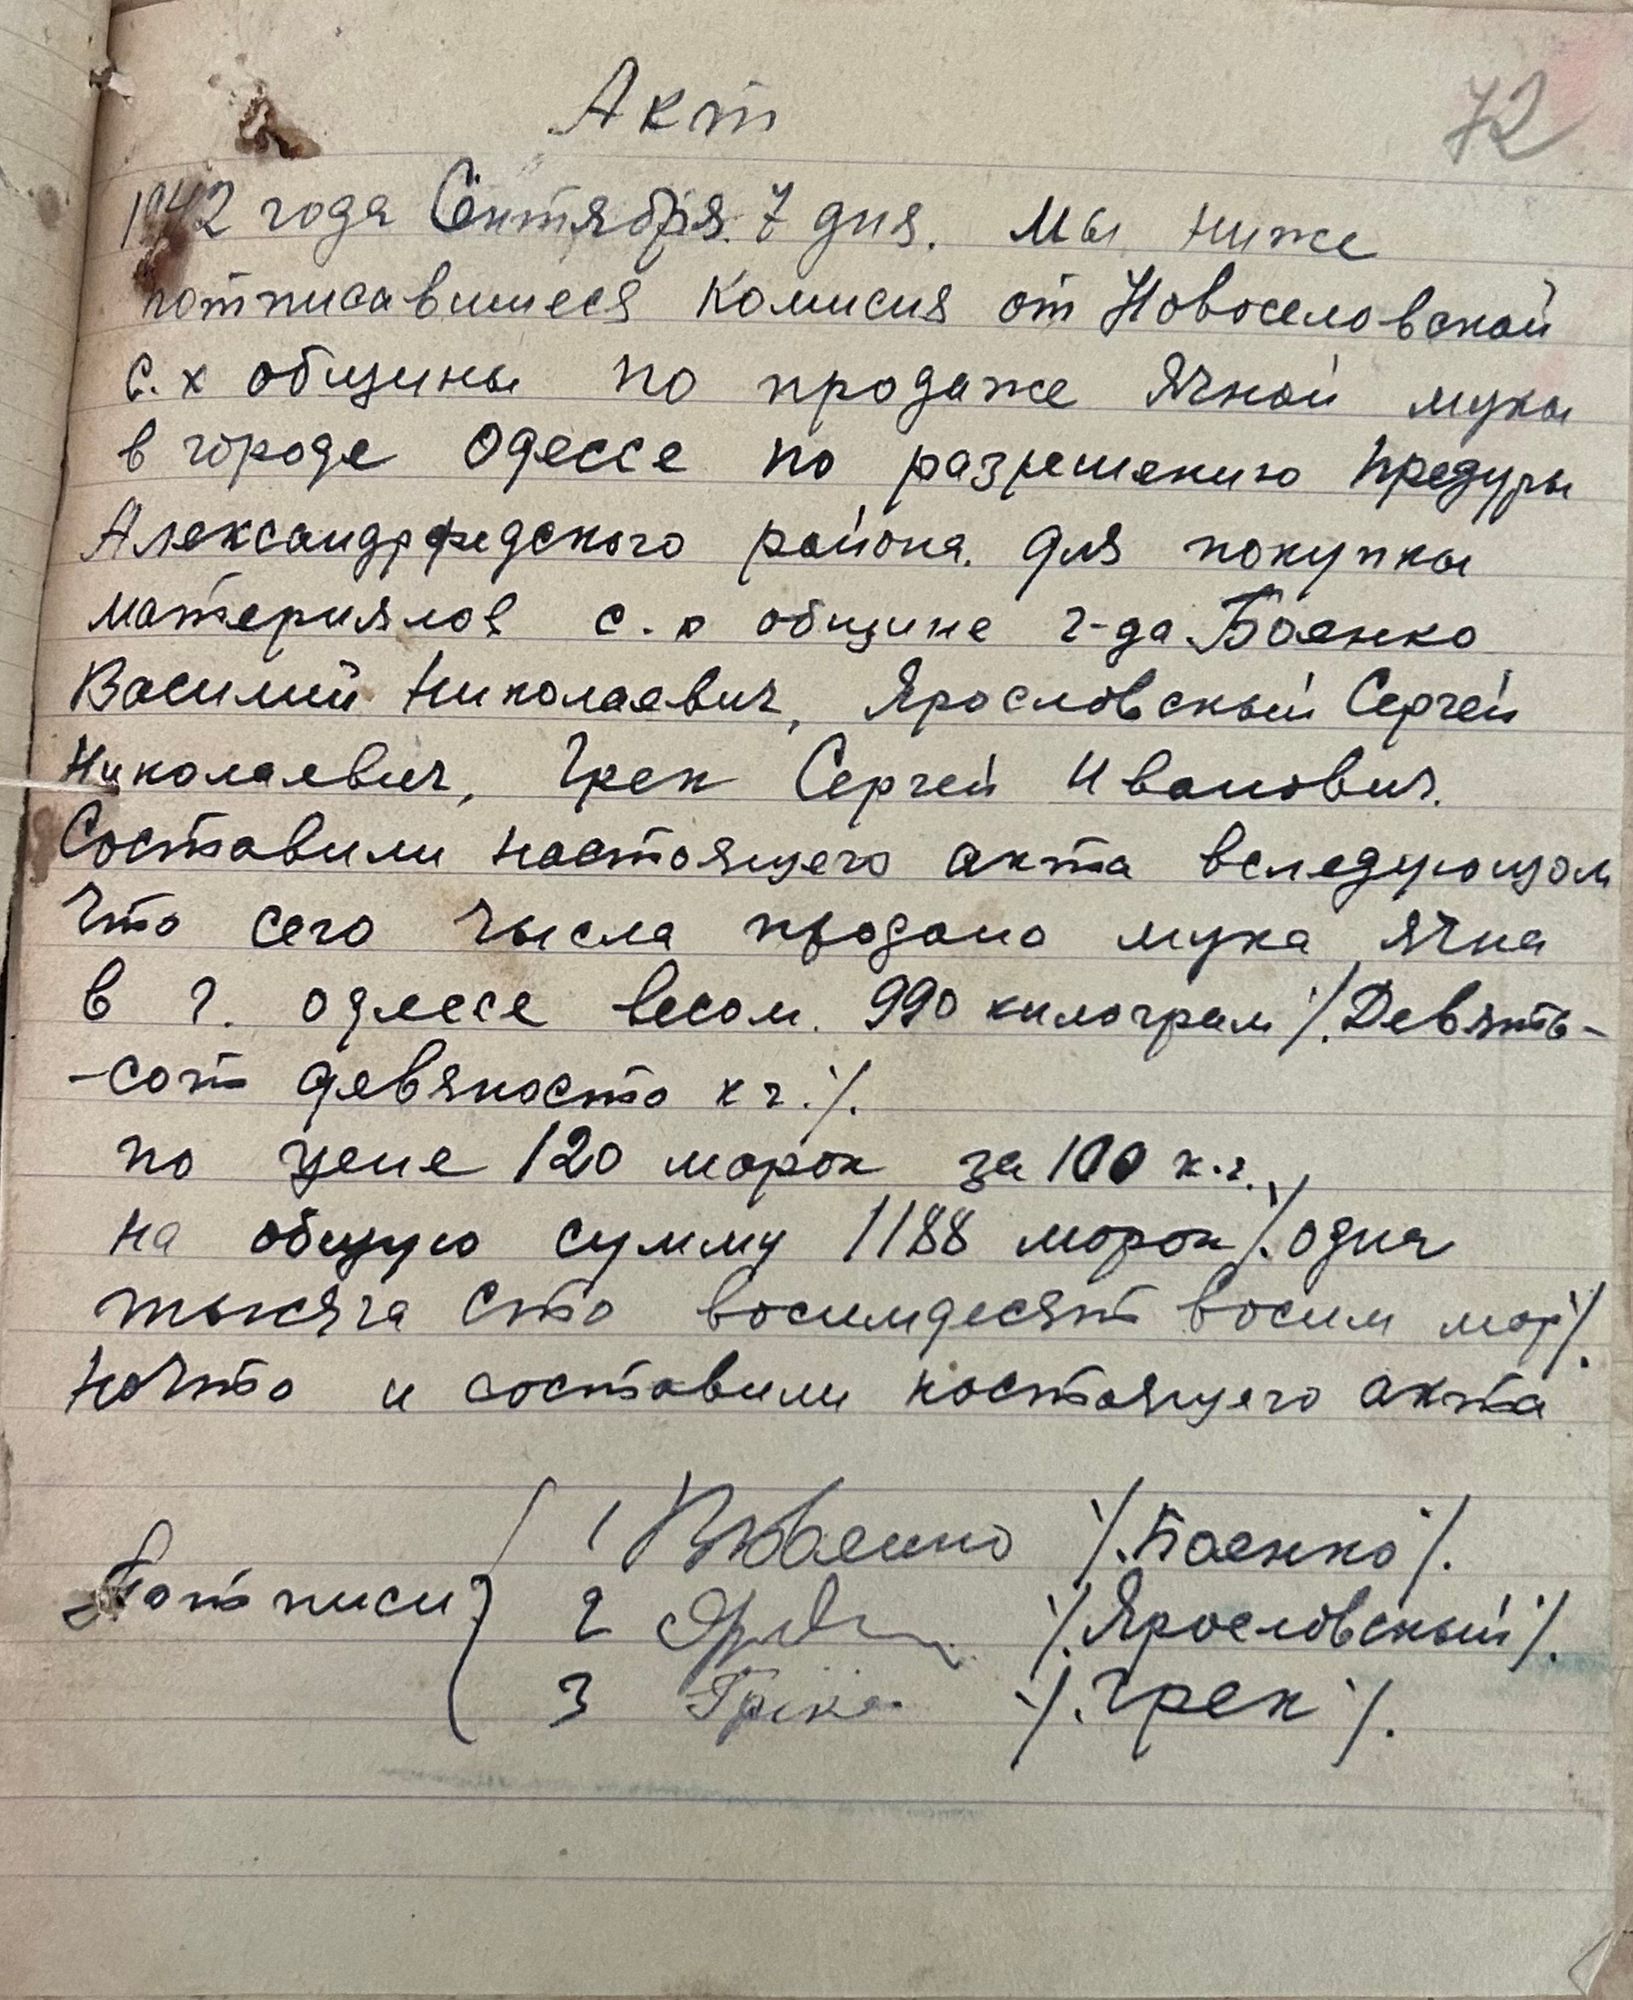 Акт
72
1942 года Сентября. 7 дня. Мы ниже
потписавшиеся Комисия от Новоселовской
с.х общины по продаже ячной муки
в городе Одессе по разрешению Предуры
Александрфедского района. для покупки
материялов с.о общине г-да Боянко
Василий Николаевич, Ярословский Сергей
Николаевич, Грек Сергей Иванович.
Составили настоящего акта вследующом
Что сего числа продано мука ячна
в г. Одессе весом. 990 килограм ·/. Девять-
-сот девяносто кг. ·/.
по цене 120 марок за 100 к.г.
на общую сумму 1188 марок ·/. одна
тысяча сто восимдесят восим мар ·/.
начто и составили настоящего акта
Потписи 1 ·/. Боянко ·/.
2 ·/. Ярословский ·/.
3 ·/. Грек ·/.